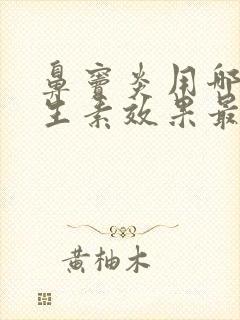 鼻窦炎用哪
生素效果最
黄柚木